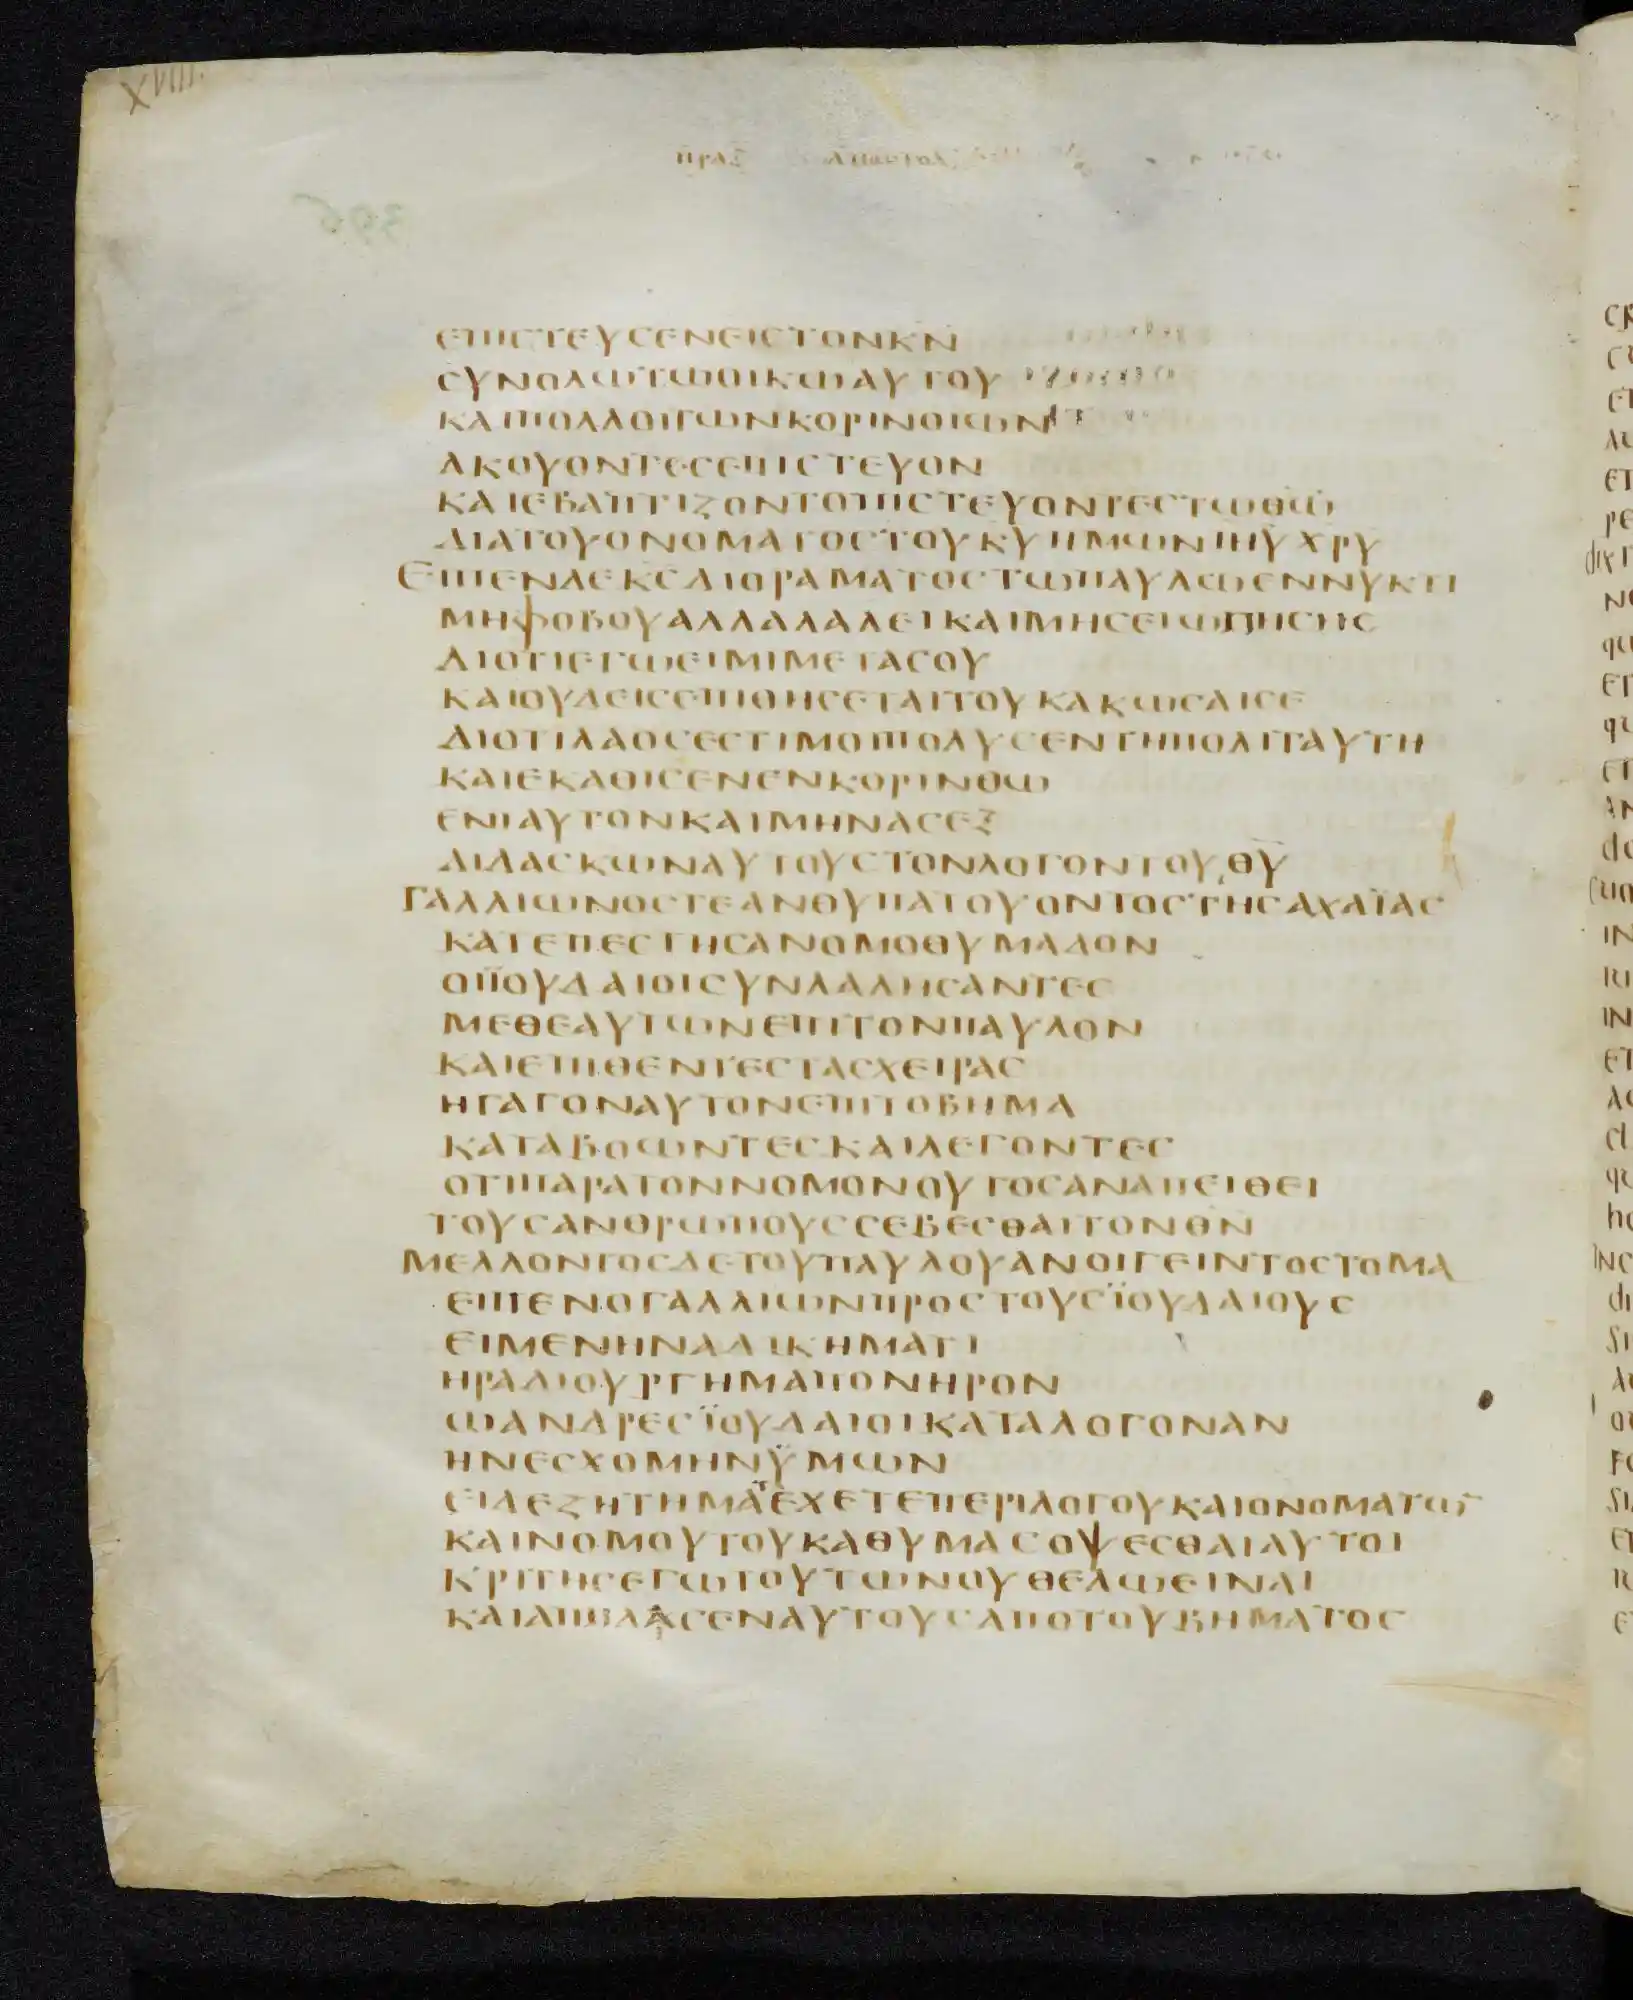 XVIII.
ΠΡΑΞ ΑΠΟΣΤΟΛ
396
ΕΠΙСΤΕΥСΕΝΕΙСΤΟΝΚΝ
СΥΝΟΛΩΤΩΟΙΚΩΑΥΤΟΥ
ΚΑΙΠΟΛΛΟΙΤΩΝΚΟΡΙΝΘΙΩΝ
ΑΚΟΥΟΝΤΕСΕΠΙСΤΕΥΟΝ
ΚΑΙΕΒΑΠΤΙΖΟΝΤΟΠΙСΤΕΥΟΝΤΕСΤΩΘΩ
ΔΙΑΤΟΥΟΝΟΜΑΤΟСΤΟΥΚΥΗΜΩΝΙΗΥΧΡΥ
ΕΙΠΕΝΔΕΚСΔΙΟΡΑΜΑΤΟСΤΩΠΑΥΛΩΕΝΝΥΚΤΙ
ΜΗΦΟΒΟΥΑΛΛΑΛΑΛΕΙΚΑΙΜΗСΕΙΩΠΗСΗС
ΔΙΟΤΙΕΓΩΕΙΜΙΜΕΤΑСΟΥ
ΚΑΙΟΥΔΕΙСΕΠΙΘΗСΕΤΑΙΤΟΥΚΑΚΩСΑΙСΕ
ΔΙΟΤΙΛΑΟСΕСΤΙΜΟΙΠΟΛΥСΕΝΤΗΠΟΛΙΤΑΥΤΗ
ΚΑΙΕΚΑΘΙСΕΝΕΝΚΟΡΙΝΘΩ
ΕΝΙΑΥΤΟΝΚΑΙΜΗΝΑСΕΞ
ΔΙΔΑСΚΩΝΑΥΤΟΥСΤΟΝΛΟΓΟΝΤΟΥΘΥ
ΓΑΛΛΙΩΝΟСΤΕΑΝΘΥΠΑΤΟΥΟΝΤΟСΤΗСΑΧΑΪΑС
ΚΑΤΕΠΕСΤΗСΑΝΟΜΟΘΥΜΑΔΟΝ
ΟΙΪΟΥΔΑΙΟΙСΥΝΛΑΛΗСΑΝΤΕС
ΜΕΘΕΑΥΤΩΝΕΠΙΤΟΝΠΑΥΛΟΝ
ΚΑΙΕΠΙΘΕΝΤΕСΤΑСΧΕΙΡΑС
ΗΓΑΓΟΝΑΥΤΟΝΕΠΙΤΟΒΗΜΑ
ΚΑΤΑΒΟΩΝΤΕСΚΑΙΛΕΓΟΝΤΕС
ΟΤΙΠΑΡΑΤΟΝΝΟΜΟΝΟΥΤΟСΑΝΑΠΕΙΘΕΙ
ΤΟΥСΑΝΘΡΩΠΟΥССΕΒΕСΘΑΙΤΟΝΘΝ
ΜΕΛΛΟΝΤΟСΔΕΤΟΥΠΑΥΛΟΥΑΝΟΙΓΕΙΝΤΟСΤΟΜΑ
ΕΙΠΕΝΟΓΑΛΛΙΩΝΠΡΟСΤΟΥСΪΟΥΔΑΙΟΥС
ΕΙΜΕΝΗΝΑΔΙΚΗΜΑΤΙ
ΗΡΑΔΙΟΥΡΓΗΜΑΠΟΝΗΡΟΝ
ΩΑΝΔΡΕСΪΟΥΔΑΙΟΙΚΑΤΑΛΟΓΟΝΑΝ
ΗΝΕСΧΟΜΗΝΫΜΩΝ
ΕΙΔΕΖΗΤΗΜΑΕΧΕΤΕΠΕΡΙΛΟΓΟΥΚΑΙΟΝΟΜΑΤΩ
ΚΑΙΝΟΜΟΥΤΟΥΚΑΘΥΜΑСΟΨΕСΘΑΙΑΥΤΟΙ
ΚΡΙΤΗСΕΓΩΤΟΥΤΩΝΟΥΘΕΛΩΕΙΝΑΙ
ΚΑΙΑΠΒΛΑСΕΝΑΥΤΟΥСΑΠΟΤΟΥΒΗΜΑΤΟС